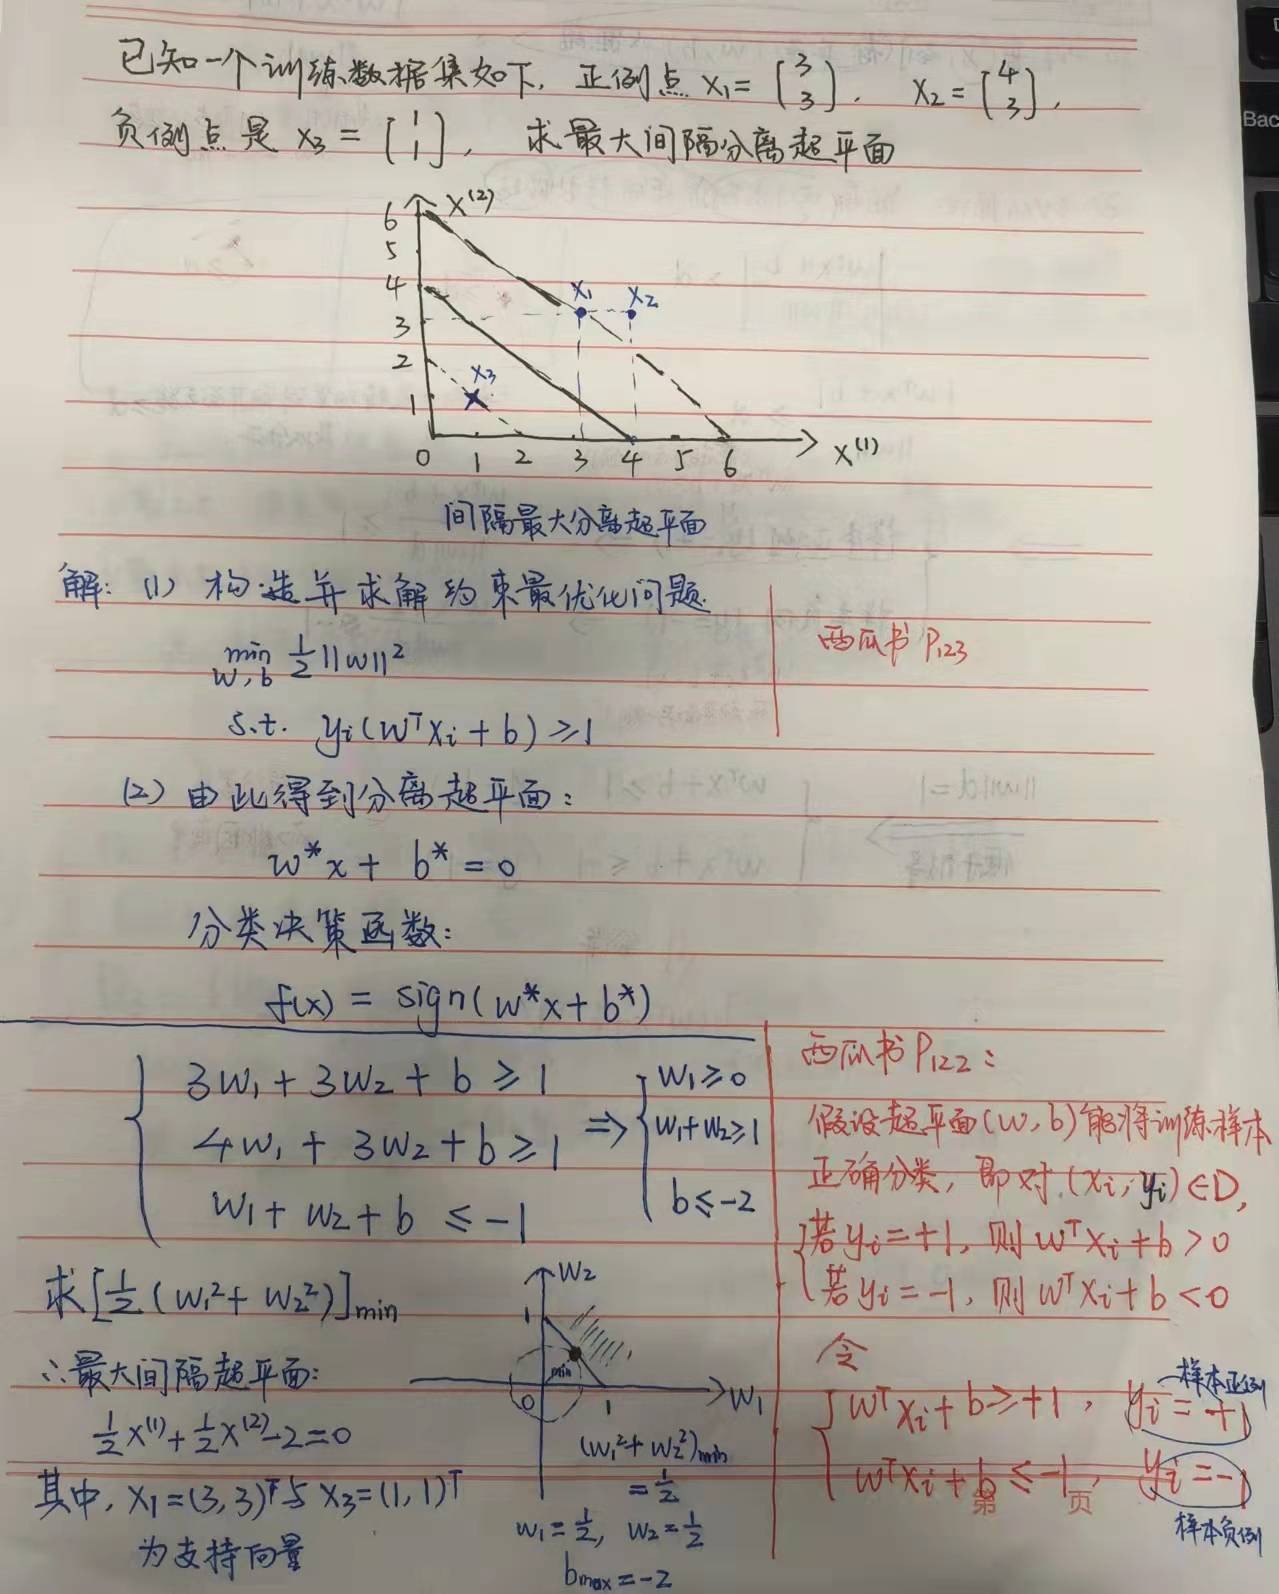 已知一个训练数据集如下，正例点 X₁ = [3 3]， X₂ = [4 3]，
负例点是 X₃ = [1 1]， 求最大间隔分离超平面
X⁽²⁾
6
5
4
3
2
1
X₁ X₂
X₃
0 1 2 3 4 5 6 X⁽¹⁾
间隔最大分离超平面
解：(1) 构造并求解约束最优化问题
min w,b ½||w||²
s.t. yᵢ(wᵀxᵢ + b) ≥ 1
西瓜书 P₁₂₃
(2) 由此得到分离超平面：
w*x + b* = 0
分类决策函数：
f(x) = sign(w*x + b*)
3w₁ + 3w₂ + b ≥ 1
4w₁ + 3w₂ + b ≥ 1
w₁ + w₂ + b ≤ -1
⇒
w₁ ≥ 0
w₁ + w₂ ≥ 1
b ≤ -2
求[½(w₁² + w₂²)]min
∴最大间隔超平面：
½x⁽¹⁾ + ½x⁽²⁾ - 2 = 0
其中，X₁ = (3,3)ᵀ与 X₃ = (1,1)ᵀ
为支持向量
W₂
1
min
0 1 W₁
(w₁² + w₂²)min
= ½
w₁ = ½, w₂ = ½
bmax = -2
西瓜书 P₁₂₂：
假设超平面(w,b)能将训练样本
正确分类，即对(xᵢ, yᵢ)∈D，
若yᵢ = +1，则 wᵀxᵢ + b > 0
若yᵢ = -1，则 wᵀxᵢ + b < 0
令
wᵀxᵢ + b ≥ +1， yᵢ = +1
样本正例
wᵀxᵢ + b ≤ -1， yᵢ = -1
样本负例
第 页
Bac